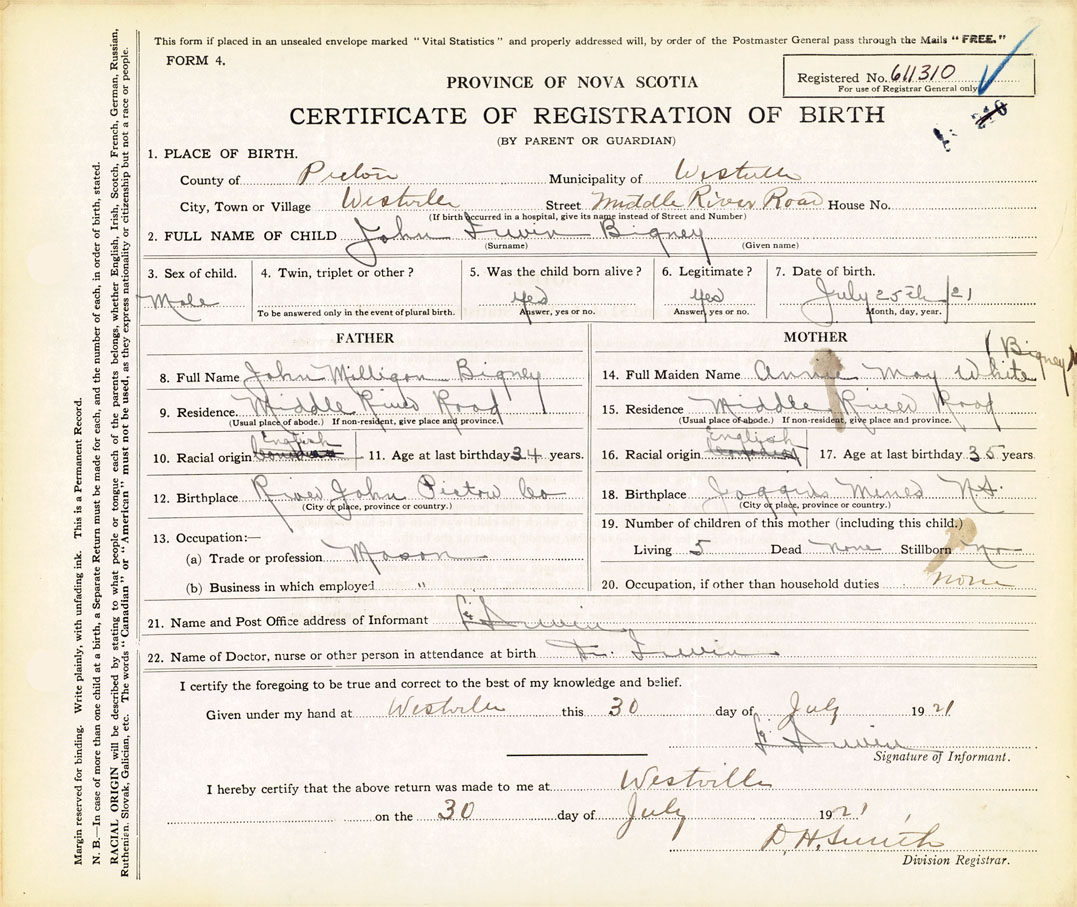 This form if placed in an unsealed envelope marked "Vital Statistics" and properly addressed will, by order of the Postmaster General pass through the Mails "FREE."
FORM 4.
Registered No. 611310
For use of Registrar General only
PROVINCE OF NOVA SCOTIA
CERTIFICATE OF REGISTRATION OF BIRTH
(BY PARENT OR GUARDIAN)
1. PLACE OF BIRTH.
County of Pictou Municipality of Westville
City, Town or Village Westville Street Middle River Road House No.
(If birth occurred in a hospital, give its name instead of Street and Number)
2. FULL NAME OF CHILD John Irwin Bigney
(Surname) (Given name)
3. Sex of child. 4. Twin, triplet or other? 5. Was the child born alive? 6. Legitimate? 7. Date of birth.
Male yes yes July 25th 21
To be answered only in the event of plural birth. Answer, yes or no. Answer, yes or no. Month, day, year.
FATHER
8. Full Name John Milligan Bigney
9. Residence Middle River Road
(Usual place of abode.) If non-resident, give place and province.
English
10. Racial origin Canadian 11. Age at last birthday 34 years.
12. Birthplace River John Pictou Co
(City or place, province or country.)
13. Occupation:—
(a) Trade or profession Mason
(b) Business in which employed "
MOTHER
(Bigney
14. Full Maiden Name Annie May White
15. Residence Middle River Road
(Usual place of abode.) If non-resident, give place and province.
English
16. Racial origin Canadian 17. Age at last birthday 35 years
18. Birthplace Joggins Mines N.S.
(City or place, province or country.)
19. Number of children of this mother (including this child.)
Living 5 Dead None Stillborn no
20. Occupation, if other than household duties none
21. Name and Post Office address of Informant Irwin
22. Name of Doctor, nurse or other person in attendance at birth Dr. Irwin
I certify the foregoing to be true and correct to the best of my knowledge and belief.
Given under my hand at Westville this 30 day of July 1921
Irwin
Signature of Informant.
I hereby certify that the above return was made to me at Westville
on the 30 day of July 1921
D. H. Smith
Division Registrar.
Margin reserved for binding. Write plainly, with unfading ink. This is a Permanent Record.
N. B.—In case of more than one child at a birth, a Separate Return must be made for each, and the number of each, in order of birth, stated.
RACIAL ORIGIN will be described by stating to what people or tongue each of the parents belongs, whether English, Irish, Scotch, French, German, Russian,
Ruthenian, Slovak, Galician, etc. The words "Canadian" or "American" must not be used, as they express nationality or citizenship but not a race or people.